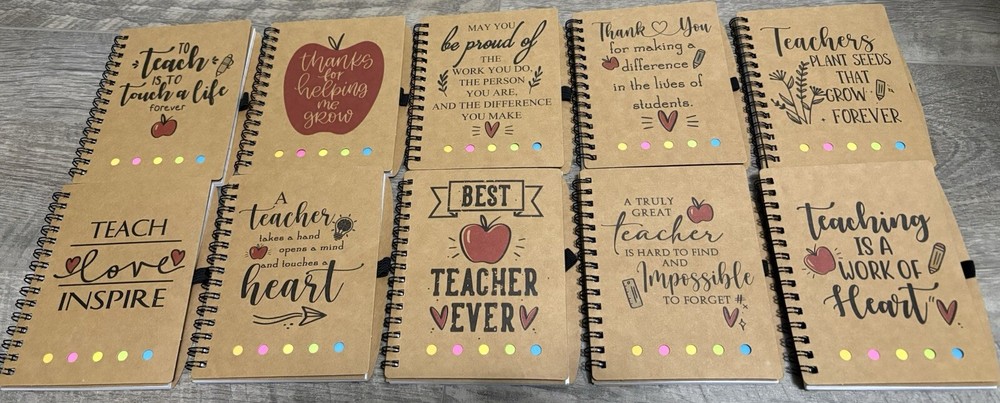 TO
Teach
IS TO
touch a life
forever
thanks
for
helping
me
grow
MAY YOU
be proud of
THE
WORK YOU DO,
THE PERSON
YOU ARE,
AND THE DIFFERENCE
YOU MAKE
Thank You
for making a
difference
in the lives of
students.
Teachers
PLANT SEEDS
THAT
GROW
FOREVER
TEACH
love
INSPIRE
A
teacher
takes a hand
opens a mind
and touches a
heart
BEST
TEACHER
EVER
A TRULY
GREAT
teacher
IS HARD TO FIND
AND
Impossible
TO FORGET #
Teaching
IS A
WORK OF
Heart